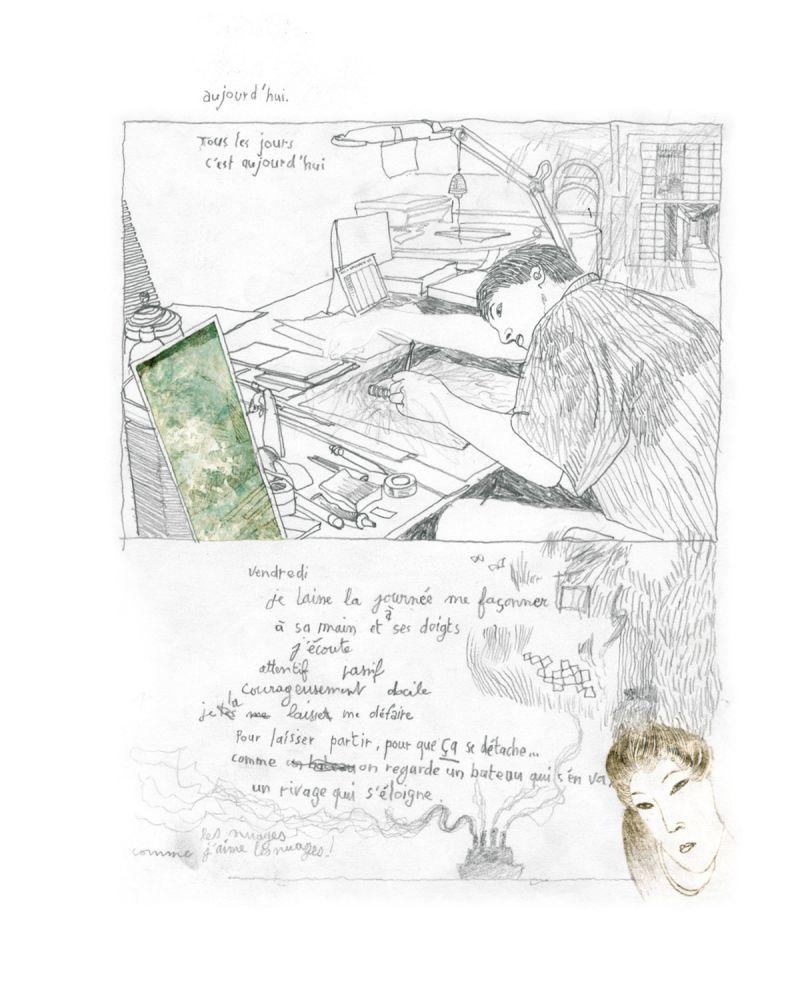 aujourd'hui.
Tous les jours
c'est aujourd'hui
vendredi
je laine la journée me façonner
à sa main et à ses doigts
j'écoute
attentif passif
courageusement docile
je la laisse me défaire
Pour laisser partir, pour que ça se détache...
comme on regarde un bateau qui s'en va,
un rivage qui s'éloigne.
les nuages
comme j'aime les nuages!